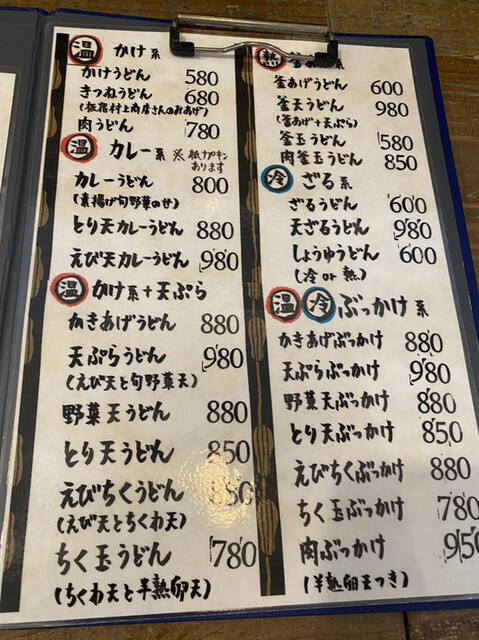 温 かけ系
かけうどん 580
きつねうどん 680
(板宿村上商店さんのおあげ)
肉うどん 780
温 カレー系 ※紙ナプキン
あります
カレーうどん 800
(素揚げ旬野菜のせ)
とり天カレーうどん 880
えび天カレーうどん 980
温 かけ系+天ぷら
かきあげうどん 880
天ぷらうどん 980
(えび天と旬野菜天)
野菜天うどん 880
とり天うどん 850
えびちくうどん 850
(えび天とちくわ天)
ちく玉うどん 780
(ちくわ天と半熟卵天)
熱 系
釜あげうどん 600
釜天うどん 980
(釜あげ+天ぷら)
釜玉うどん 580
肉釜玉うどん 850
冷 ざる系
ざるうどん 600
天ざるうどん 980
しょうゆうどん 600
(冷 or 熱)
温 冷 ぶっかけ系
かきあげぶっかけ 880
天ぷらぶっかけ 980
野菜天ぶっかけ 880
とり天ぶっかけ 850
えびちくぶっかけ 880
ちく玉ぶっかけ 780
肉ぶっかけ 950
(半熟卵天つき)